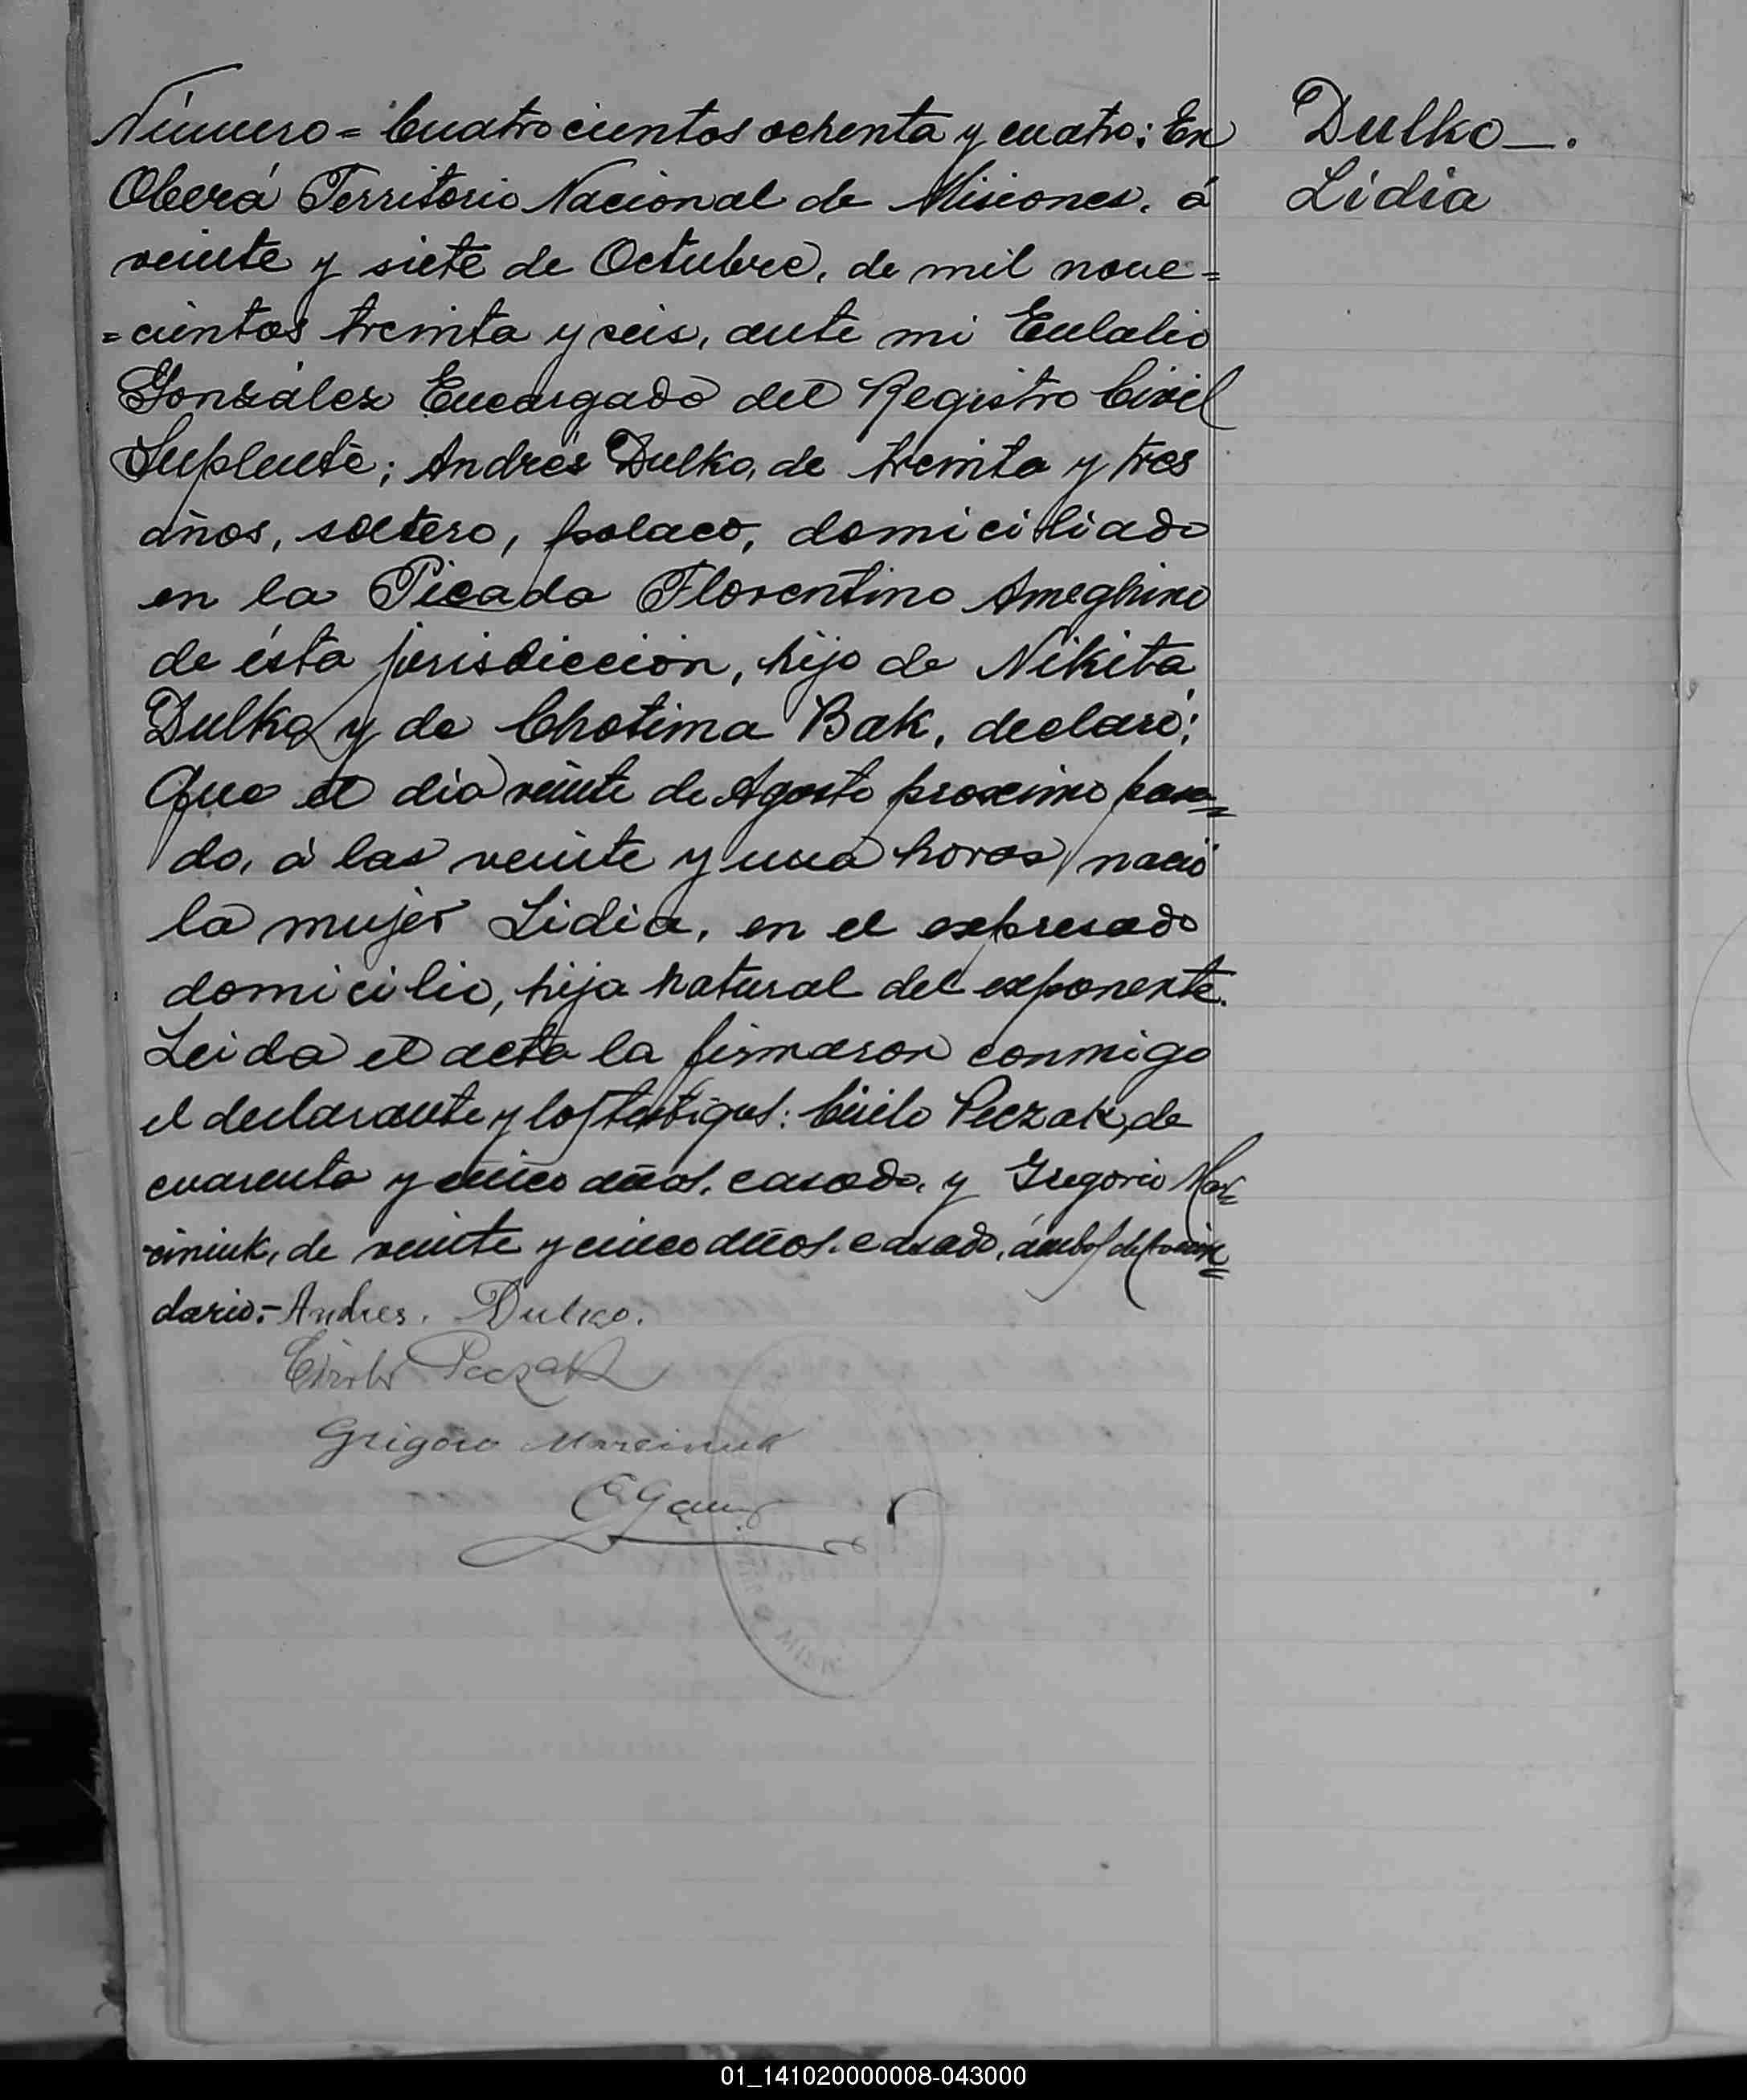 Número = Cuatrocientos ochenta y cuatro: En
Oberá Territorio Nacional de Misiones, á
veinte y siete de Octubre, de mil nove=
=cientos treinta y seis, ante mi Eulalio
González Encargado del Registro Civil
Suplente; Andrés Dulko, de treinta y tres
años, soltero, polaco, domiciliado
en la Picada Florentino Ameghino
de ésta jurisdiccion, hijo de Nikita
Dulko y de Chotima Bak, declaró:
Que el dia veinte de Agosto proximo pasa=
do, á las veinte y una horas, nació
la mujer Lidia, en el expresado
domicilio, hija natural del exponente.
Leida el acta la firmaron conmigo
el declarante y los testigos: Cirilo Peczak, de
cuarenta y cinco años, casado, y Gregorio Mar=
ciniuk, de veinte y cinco años, casado, ámbos del vecin=
dario.- Andres. Dulko.
Peczak
Grigorio Marciniuk
Dulko—.
Lidia
01_141020000008-043000